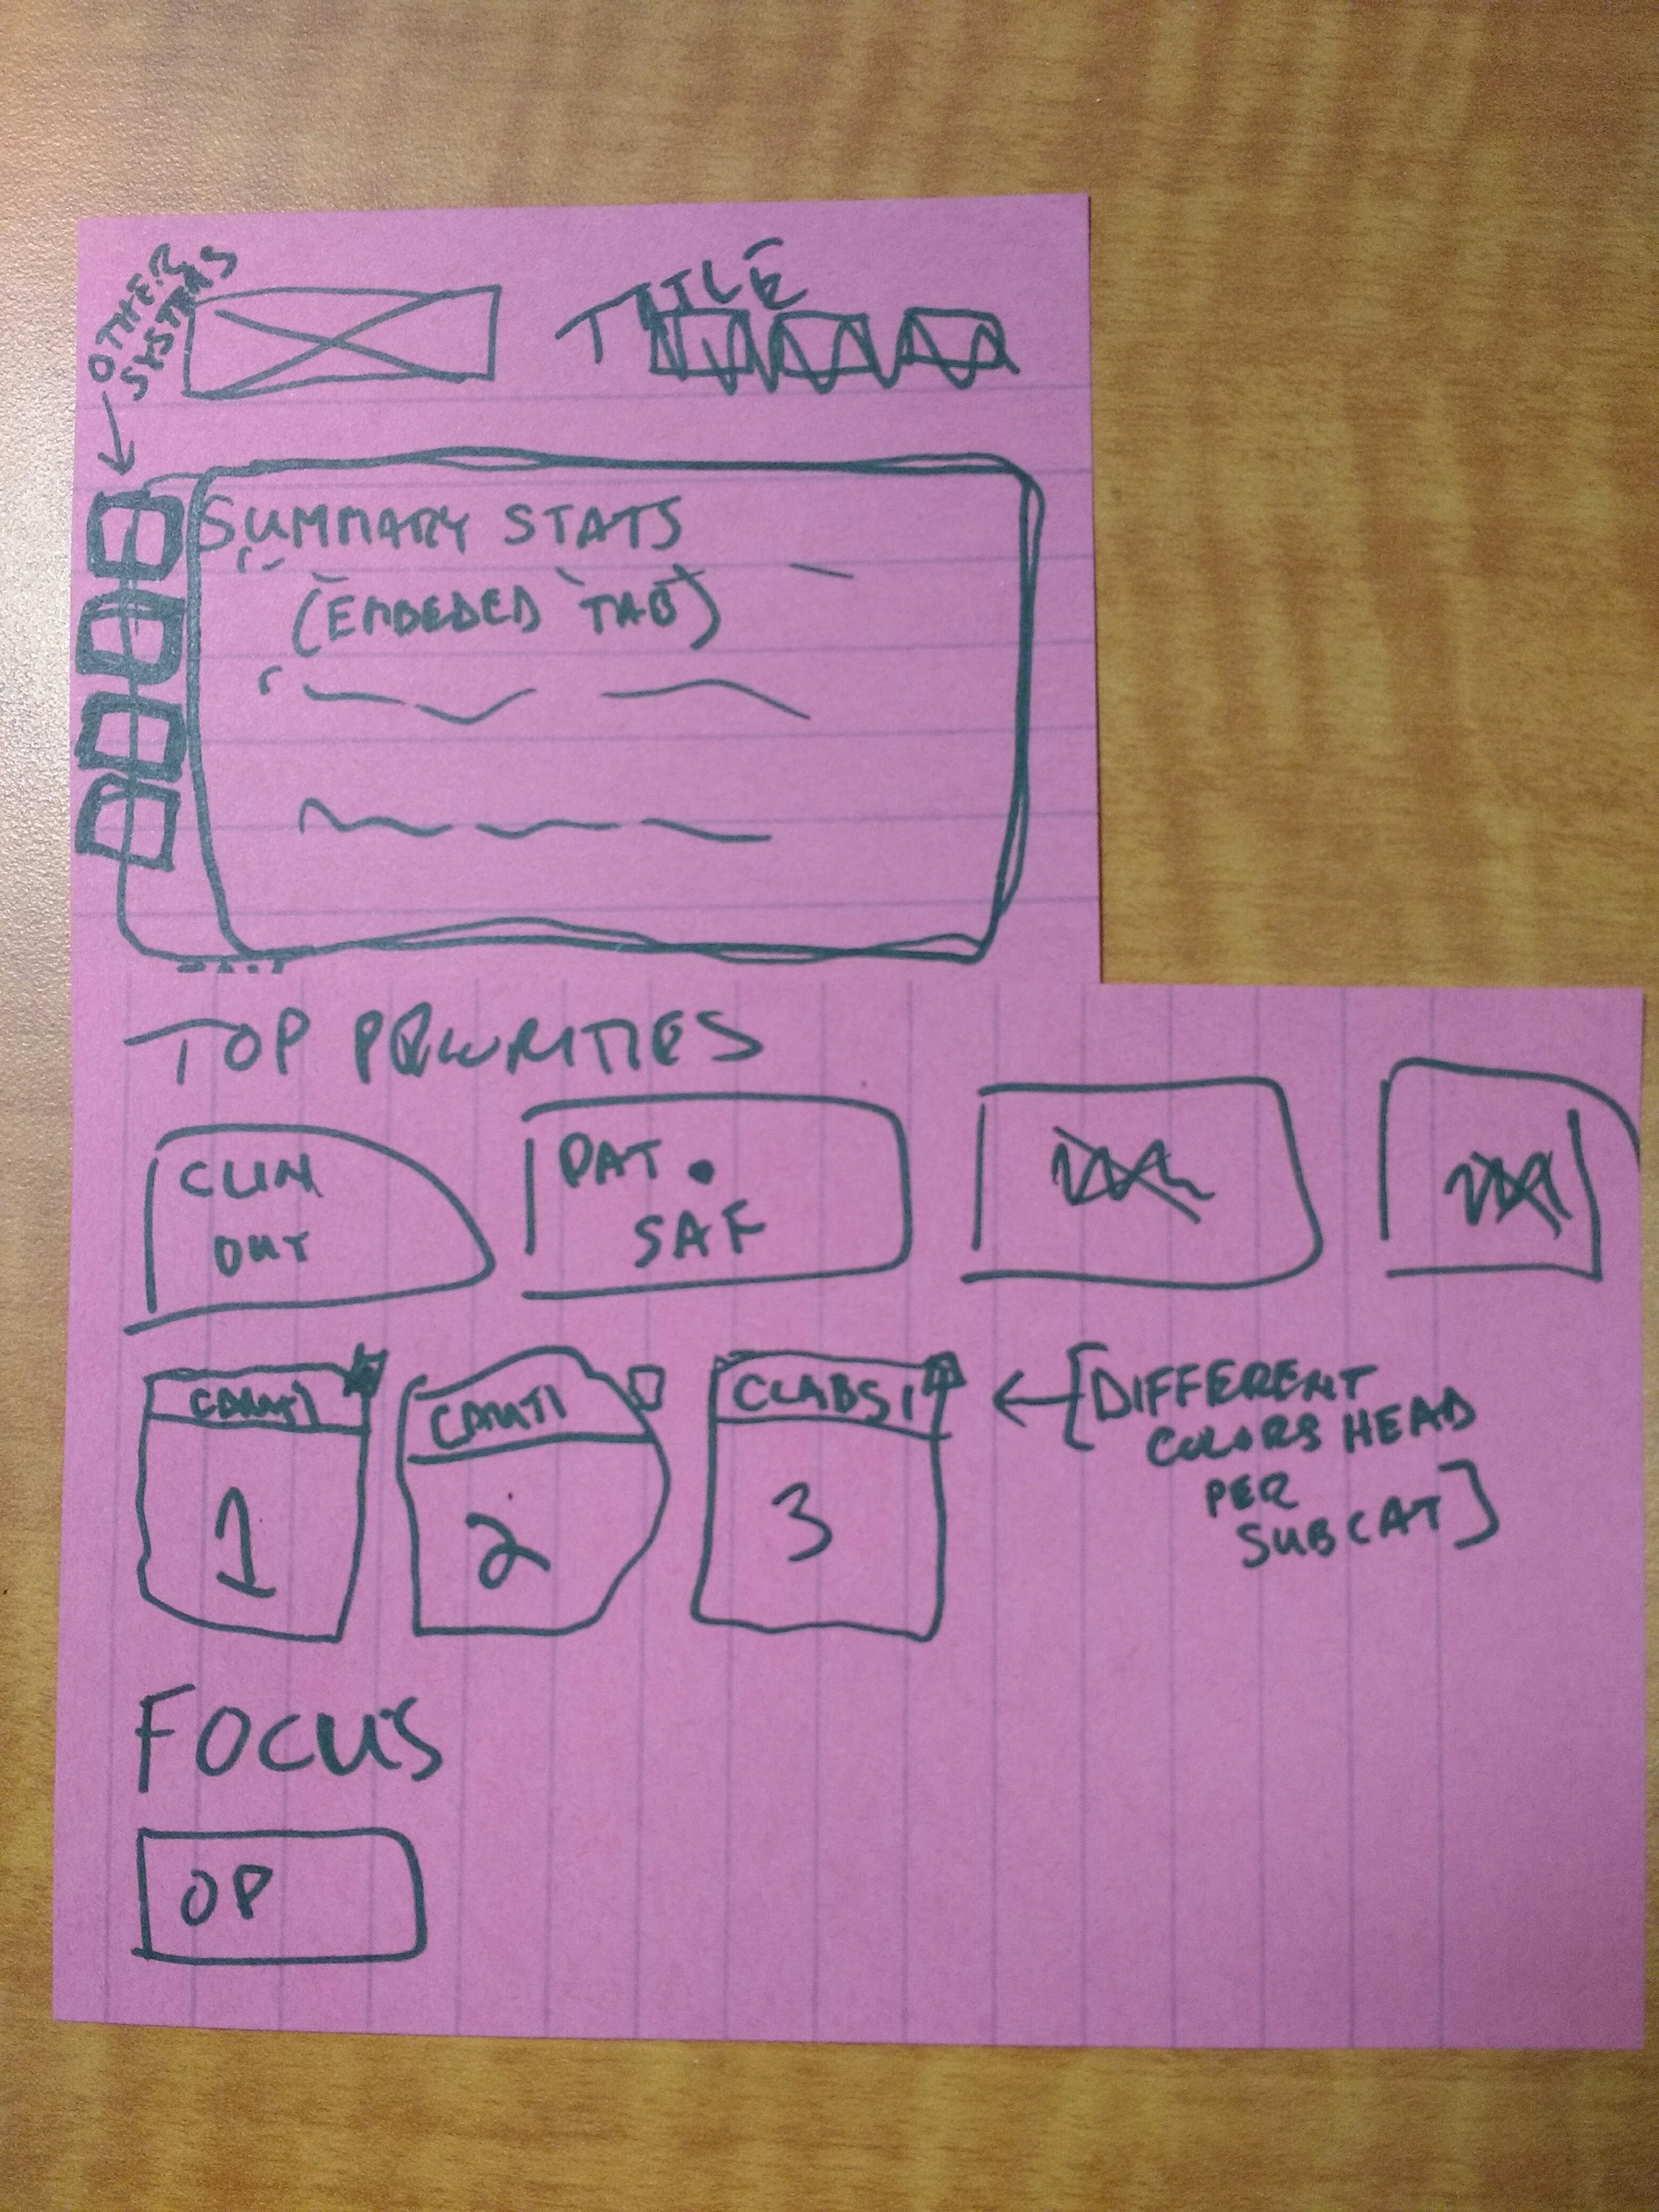 OTHER
SYSTEMS
TITLE
SUMMARY STATS
(EMBEDED TAB)
TOP PRIORITIES
CLIN
OUT
PAT.
SAF
CAUTI
CAUTI
CLABSI
1
2
3
[DIFFERENT
COLORS HEAD
PER
SUBCAT]
FOCUS
OP